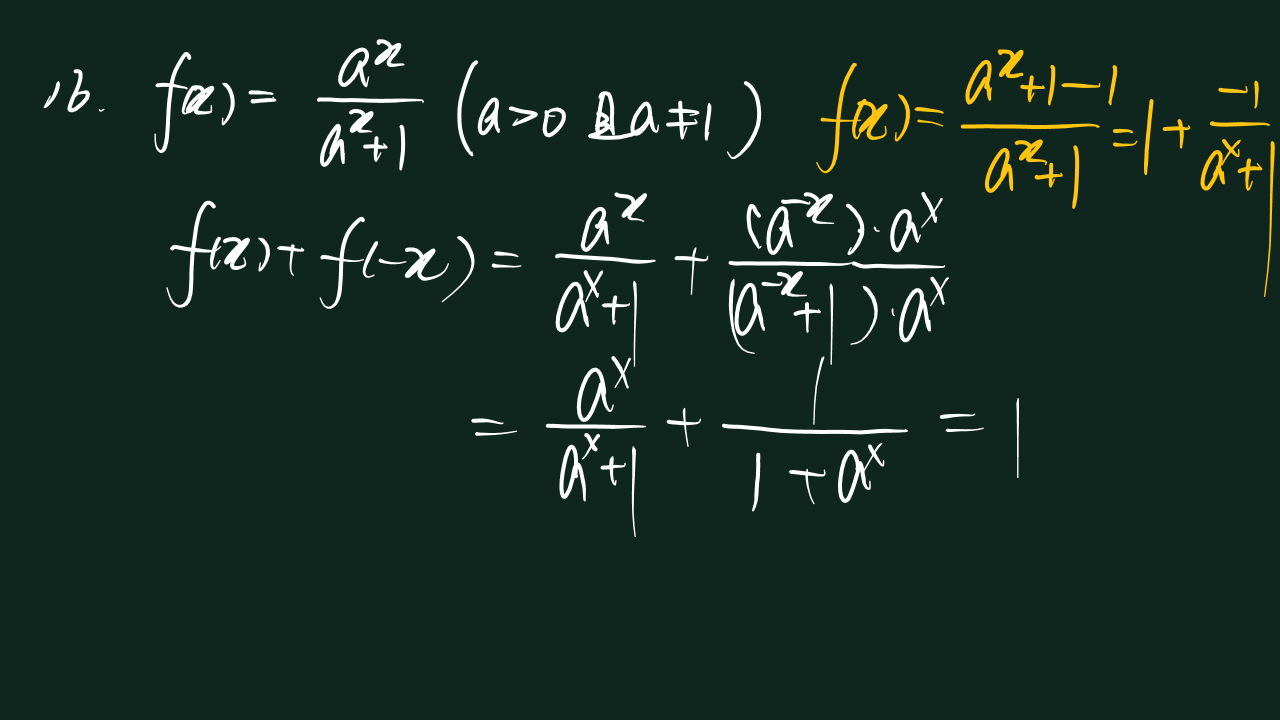 16. f(x) = a^x/(a^x+1) (a>0 且 a≠1) f(x) = (a^x+1-1)/(a^x+1) = 1 + (-1)/(a^x+1)
f(x) + f(-x) = a^x/(a^x+1) + ((a^-x)·a^x)/((a^-x+1)·a^x)
= a^x/(a^x+1) + 1/(1+a^x) = 1